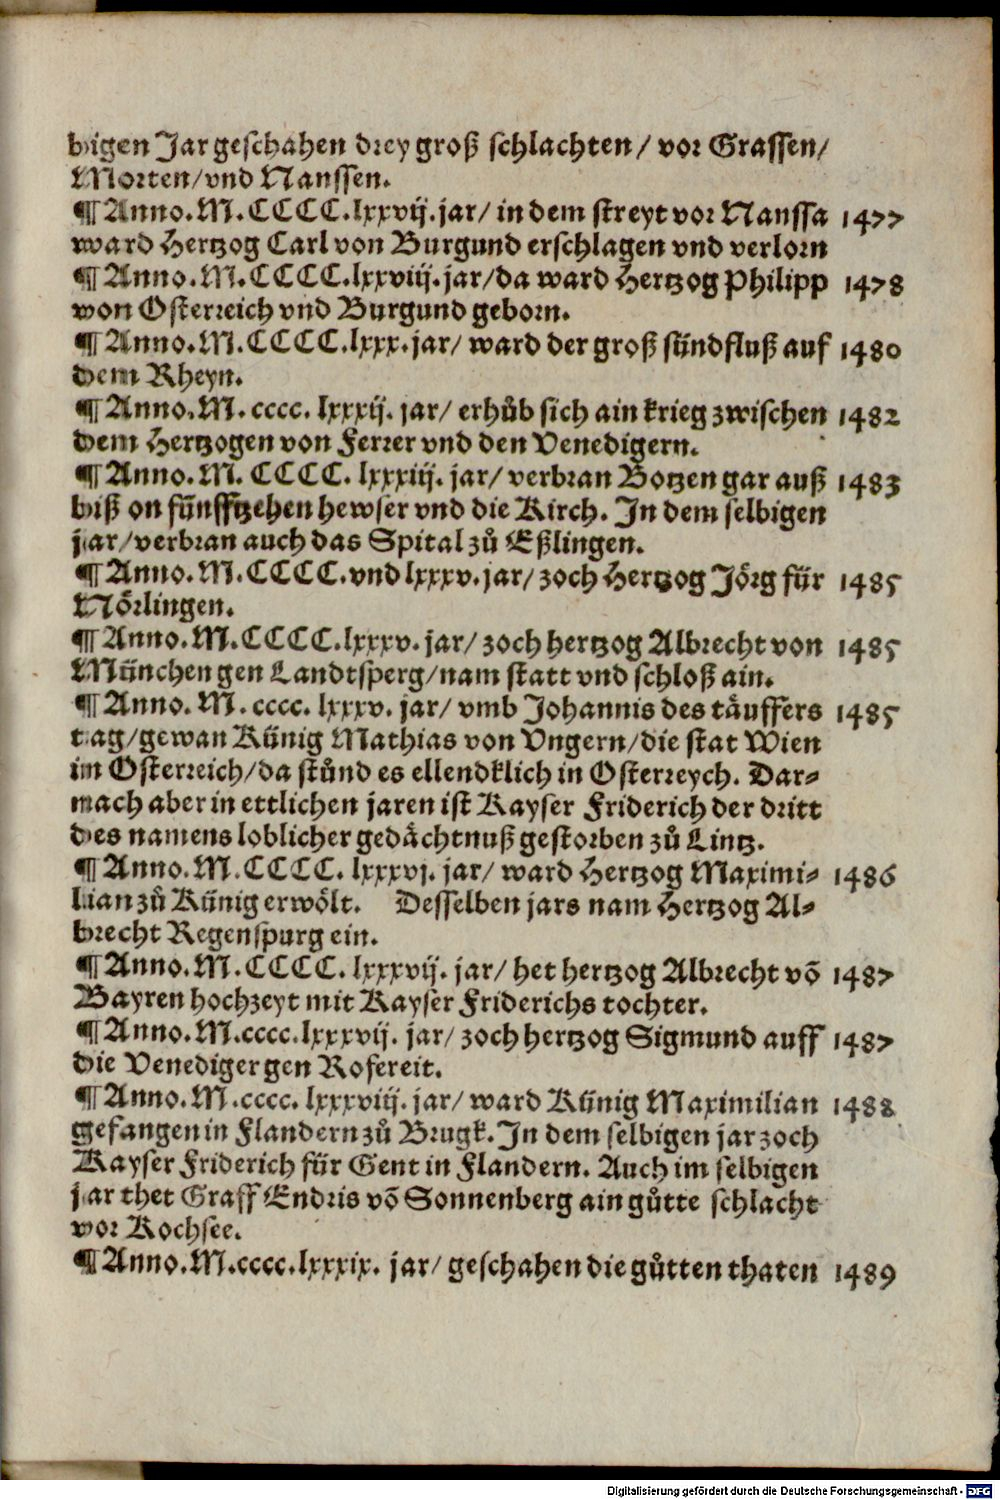 bigen Jar geschahen drey groß schlachten / vor Grassen /
Morten / vnd Nanssen.
¶ Anno. M. CCCC. lxxvij. jar / in dem streyt vor Nanssa 1477
ward Hertzog Carl von Burgund erschlagen vnd verlorn
¶ Anno. M. CCCC. lxxviij. jar / da ward Hertzog Philipp 1478
von Osterreich vnd Burgund geborn.
¶ Anno. M. CCCC. lxxx. jar / ward der groß sündfluß auf 1480
dem Rheyn.
¶ Anno. M. cccc. lxxxij. jar / erhůb sich ain krieg zwischen 1482
dem Hertzogen von Ferrer vnd den Venedigern.
¶ Anno. M. CCCC. lxxxiij. jar / verbran Botzen gar auß 1483
biß on fünfftzehen hewser vnd die Kirch. In dem selbigen
jar / verbran auch das Spital zů Eßlingen.
¶ Anno. M. CCCC. vnd lxxxv. jar / zoch Hertzog Jörg für 1485
Nörlingen.
¶ Anno. M. CCCC. lxxxv. jar / zoch hertzog Albrecht von 1485
München gen Landtsperg / nam statt vnd schloß ain.
¶ Anno. M. cccc. lxxxv. jar / vmb Johannis des täuffers 1485
tag / gewan Künig Mathias von Vngern / die stat Wien
im Osterreich / da stůnd es ellendklich in Osterreych. Dar⸗
nach aber in ettlichen jaren ist Kayser Friderich der dritt
des namens loblicher gedächtnuß gestorben zů Lintz.
¶ Anno. M. CCCC. lxxxvj. jar / ward Hertzog Maximi⸗ 1486
lian zů Künig erwölt. Desselben jars nam Hertzog Al⸗
brecht Regenspurg ein.
¶ Anno. M. CCCC. lxxxvij. jar / het hertzog Albrecht võ 1487
Bayren hochzeyt mit Kayser Friderichs tochter.
¶ Anno. M. cccc. lxxxvij. jar / zoch hertzog Sigmund auff 1487
die Venediger gen Rofereit.
¶ Anno. M. cccc. lxxxviij. jar / ward Künig Maximilian 1488
gefangen in Flandern zů Brugk. In dem selbigen jar zoch
Kayser Friderich für Gent in Flandern. Auch im selbigen
jar thet Graff Endris võ Sonnenberg ain gůtte schlacht
vor Kochsee.
¶ Anno. M. cccc. lxxxix. jar / geschahen die gůtten thaten 1489
Digitalisierung gefördert durch die Deutsche Forschungsgemeinschaft - DFG